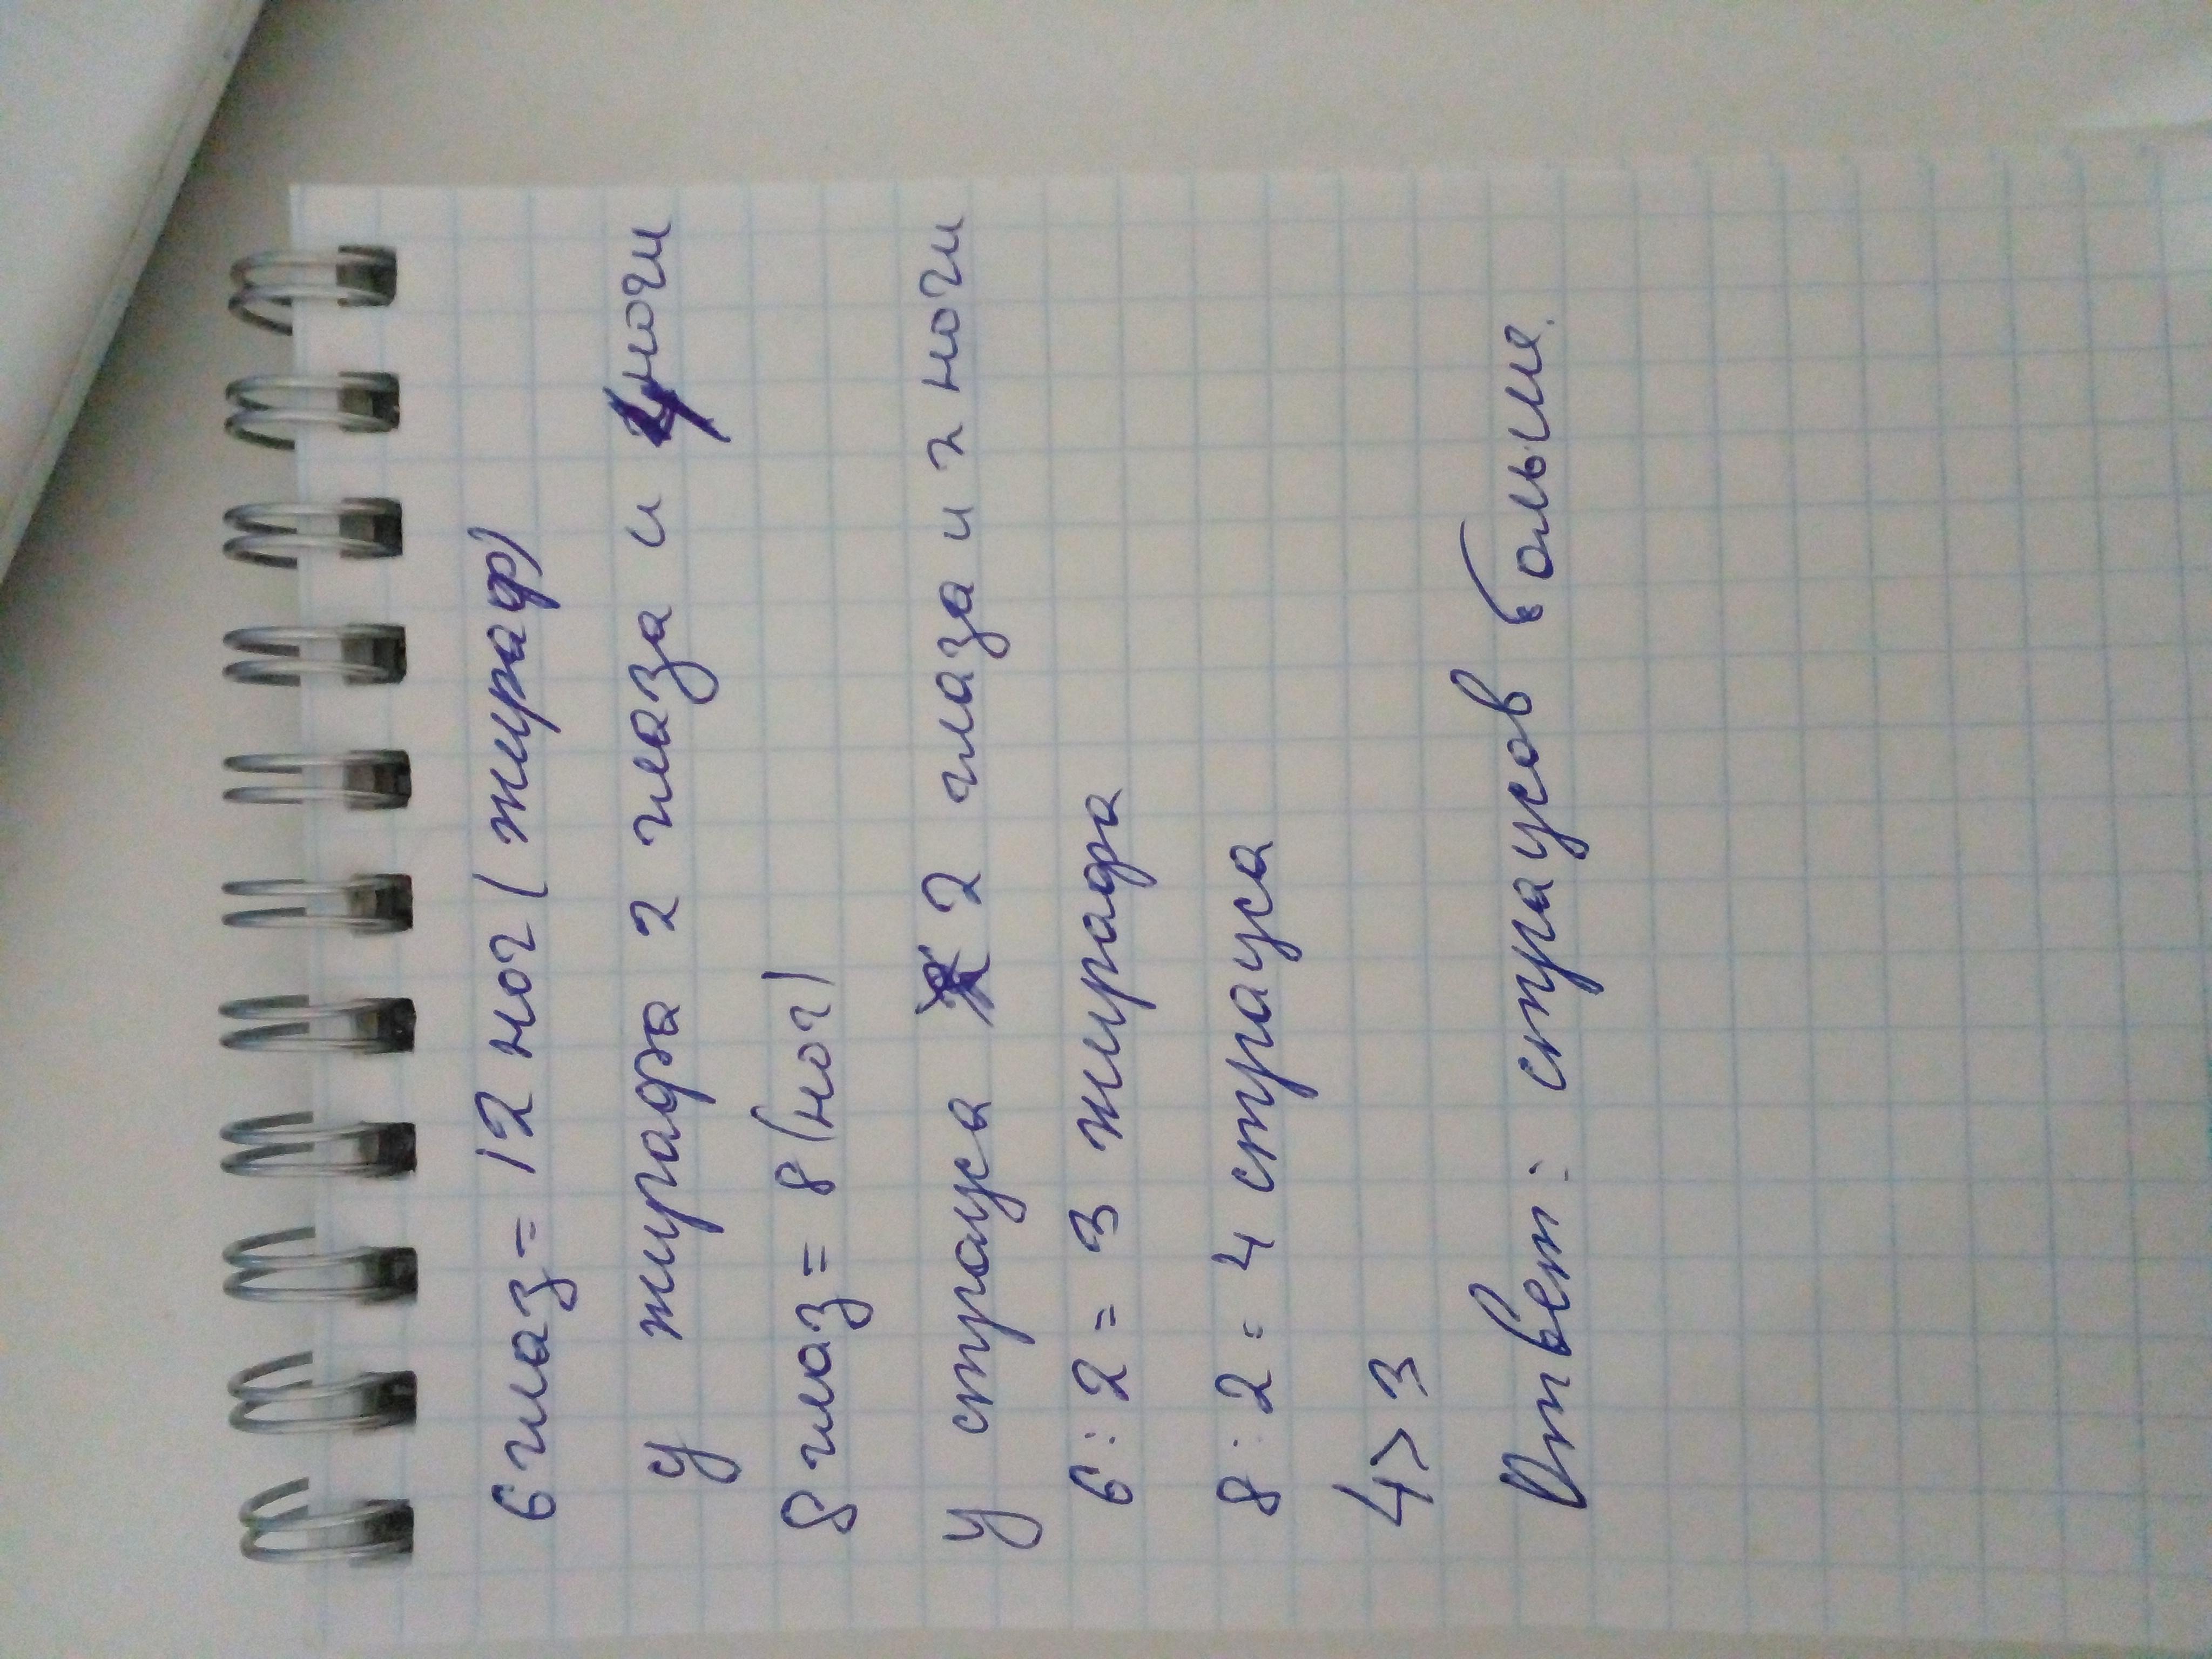 6 глаз = 12 ног (жираф)
у жирафа 2 глаза и 4 ноги
8 глаз = 8 (ног)
у страуса 2 глаза и 2 ноги
6 : 2 = 3 жирафа
8 : 2 = 4 страуса
4 > 3
Ответ: страусов больше.